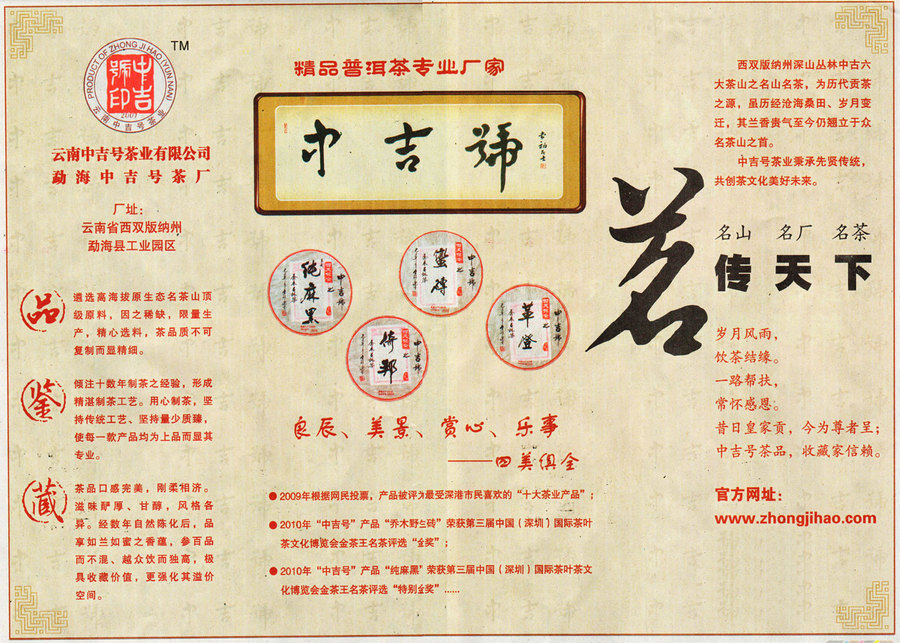 PRODUCT OF ZHONG JI HAO (YUN NAN)
中吉
號印
2007
云南中吉号茶业
TM
云南中吉号茶业有限公司
勐海中吉号茶厂
厂址：
云南省西双版纳州
勐海县工业园区
品
遴选高海拔原生态名茶山顶
级原料，因之稀缺，限量生
产，精心选料，茶品质不可
复制而显精细。
鉴
倾注十数年制茶之经验，形成
精湛制茶工艺。用心制茶，坚
持传统工艺、坚持量少质臻，
使每一款产品均为上品而显其
专业。
藏
茶品口感完美，刚柔相济。
滋味酽厚、甘醇，风格各
异。经数年自然陈化后，品
享如兰如蜜之香蕴，参百品
而不混、越众饮而独高，极
具收藏价值，更强化其溢价
空间。
精品普洱茶专业厂家
中吉號
中吉號
纯麻黑
中吉號
蛮砖
中吉號
倚邦
中吉號
革登
良辰、美景、赏心、乐事
——四美俱全
●2009年根据网民投票，产品被评为最受深港市民喜欢的“十大茶业产品”；
●2010年“中吉号”产品“乔木野生砖”荣获第三届中国（深圳）国际茶叶
茶文化博览会金茶王名茶评选“金奖”；
●2010年“中吉号”产品“纯麻黑”荣获第三届中国（深圳）国际茶叶茶文
化博览会金茶王名茶评选“特别金奖”……
西双版纳州深山丛林中古六
大茶山之名山名茶，为历代贡茶
之源，虽历经沧海桑田、岁月变
迁，其兰香贵气至今仍翘立于众
名茶山之首。
中吉号茶业秉承先贤传统，
共创茶文化美好未来。
茗
名山 名厂 名茶
传天下
岁月风雨，
饮茶结缘。
一路帮扶，
常怀感恩。
昔日皇家贡，今为尊者呈；
中吉号茶品，收藏家信赖。
官方网址：
www.zhongjihao.com